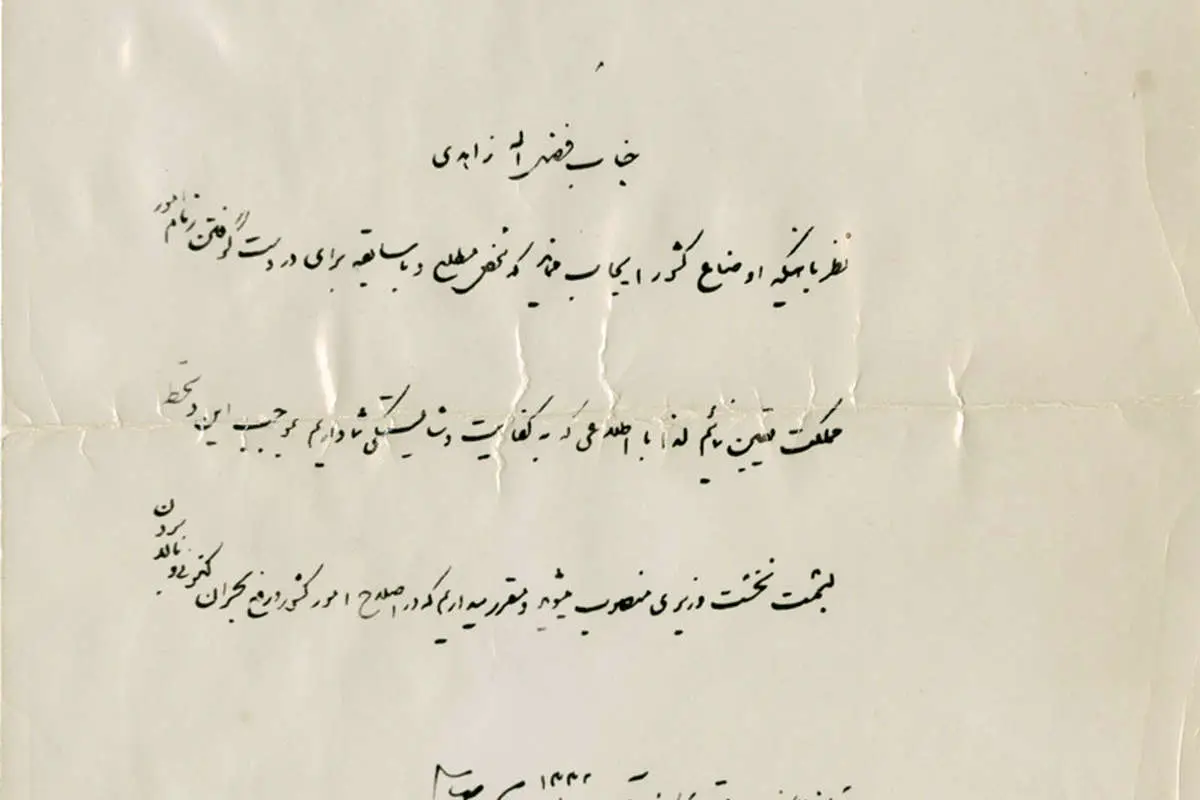 جناب فضل اله زاهدی
نظر باینکه اوضاع کشور ایجاب مینماید که شخص مطلع و با سابقه برای در دست گرفتن زمام امور
مملکت تعیین نمائیم لذا با اطلاعی که به کفایت و شایستگی شما داریم بموجب این دستخط
بسمت نخست وزیری منصوب میشوید و مقرر میداریم که در اصلاح امور کشور و رفع بحران کنونی و بالا بردن
۱۳۳۲